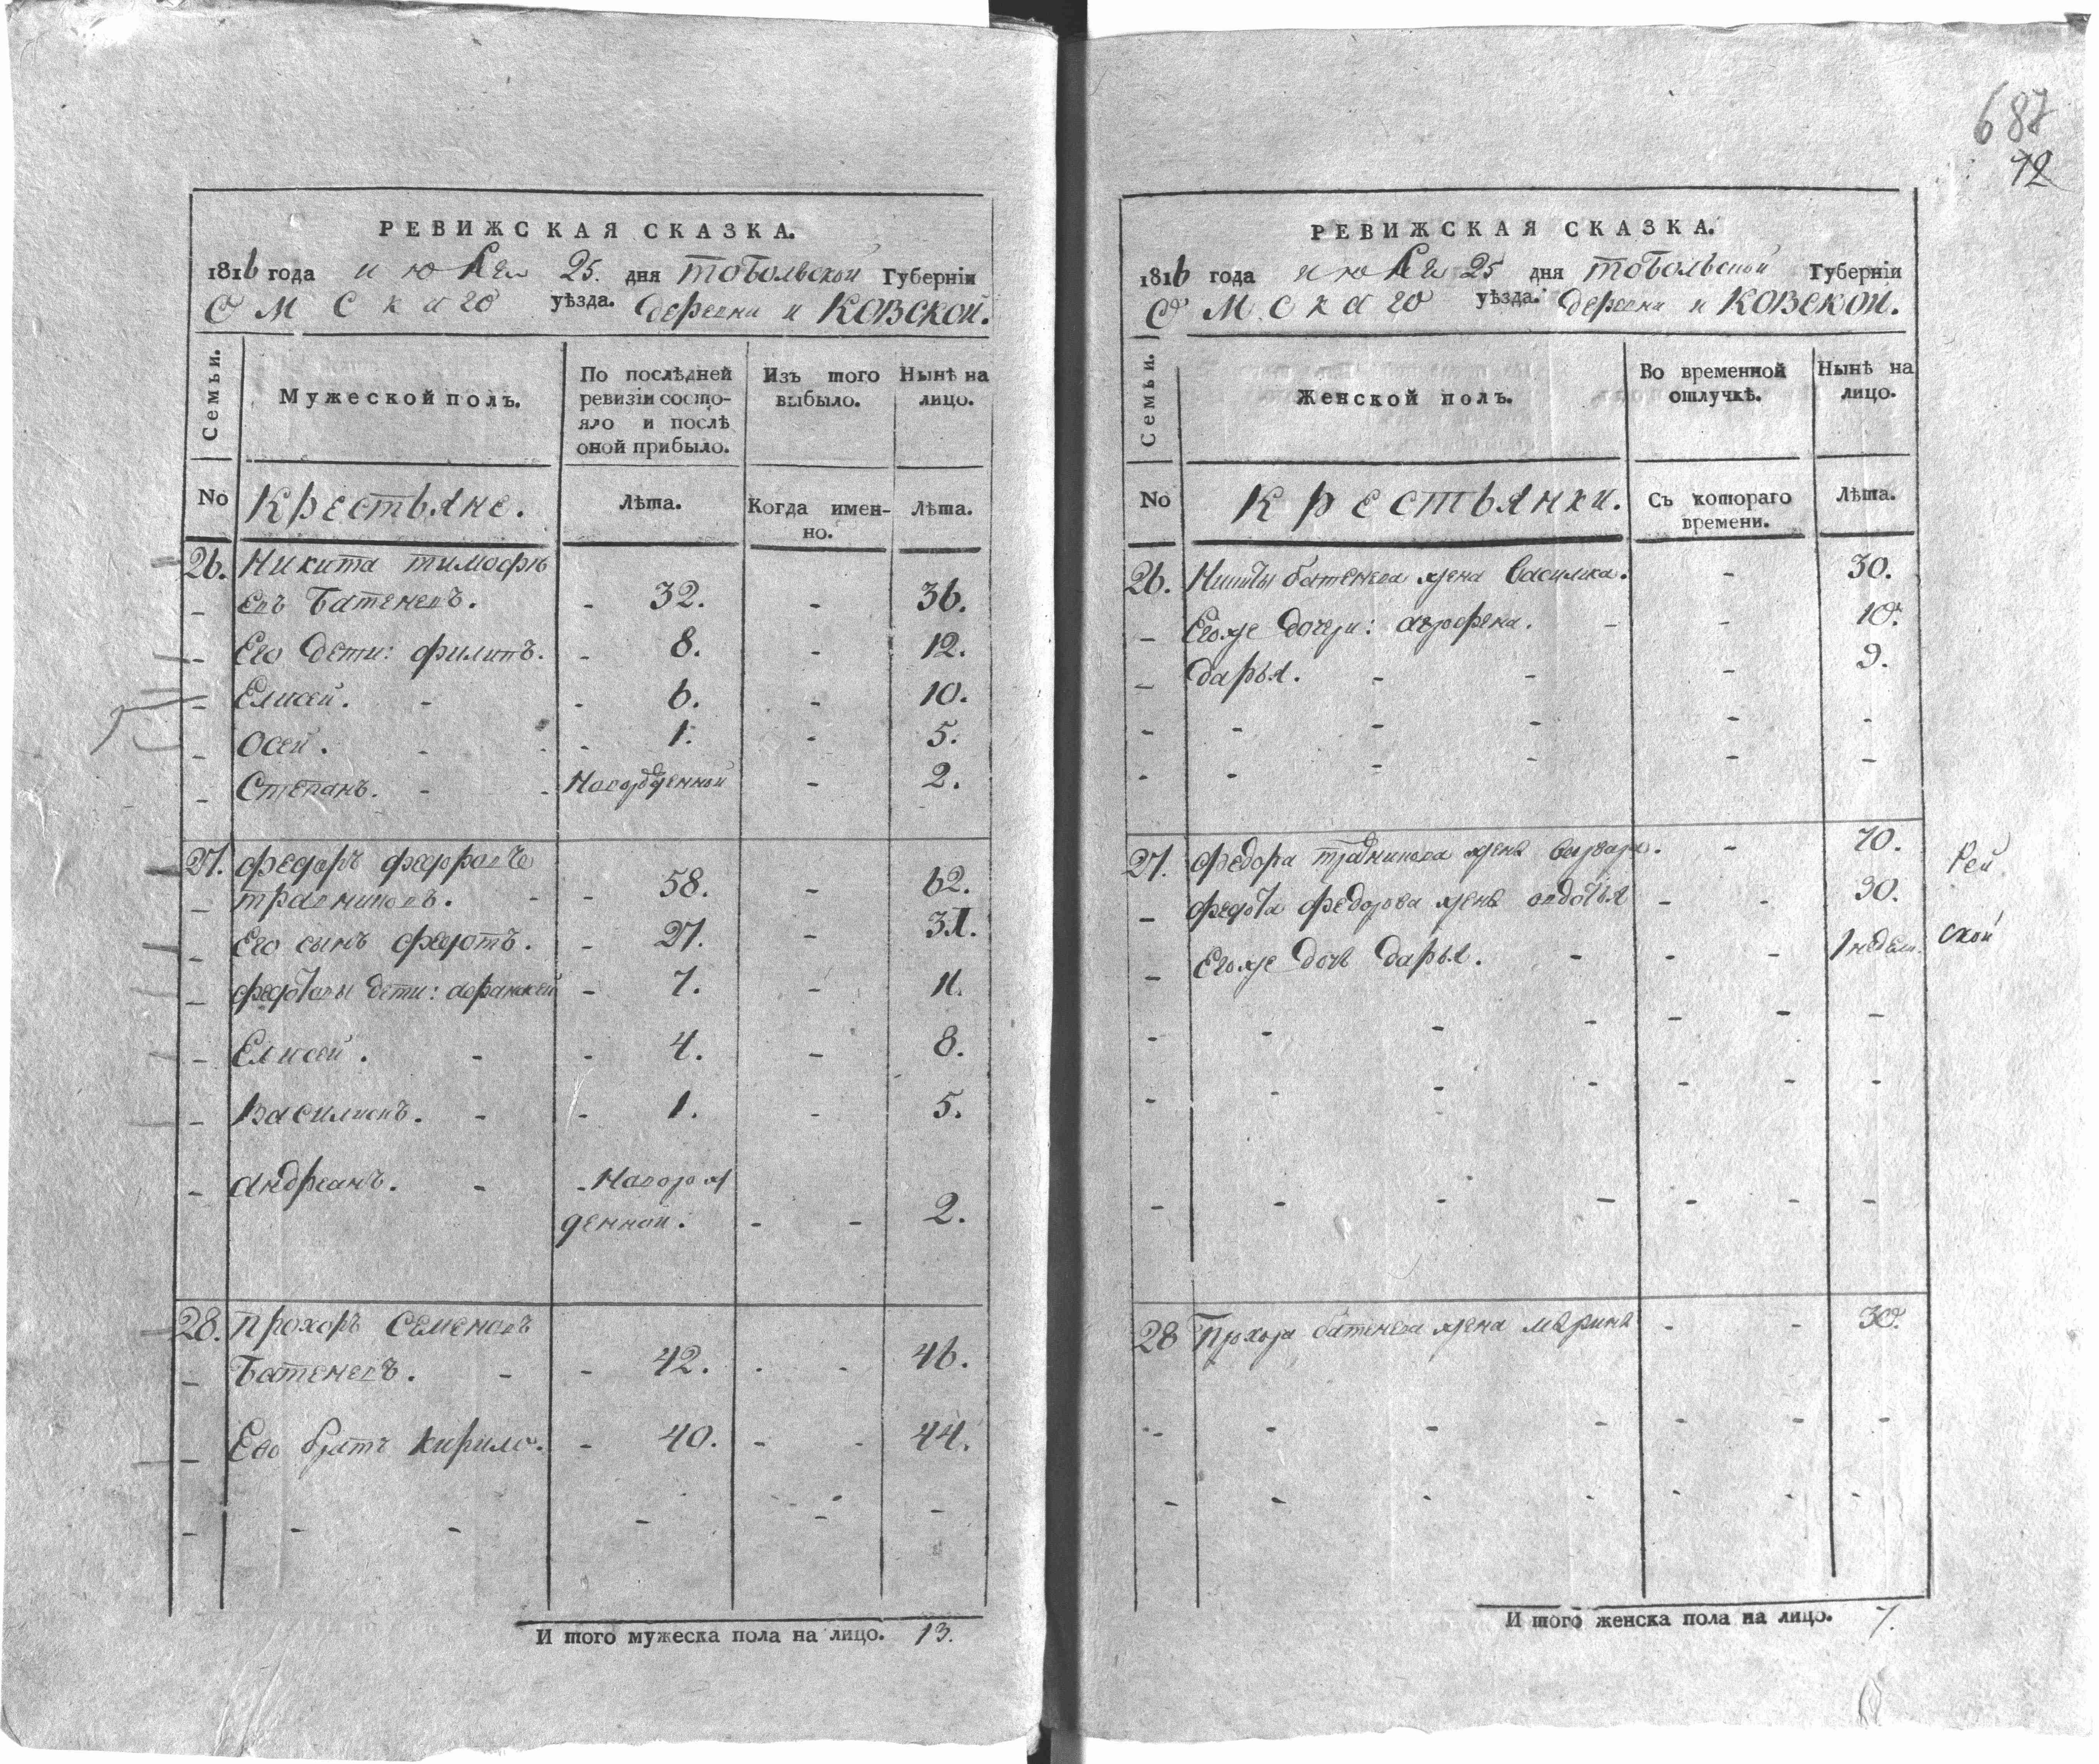 РЕВИЖСКАЯ СКАЗКА.
1816 года июля 25. дня тобольской Губерніи
Омскаго уѣзда. деревни иковской.
Семьи.
Мужеской полъ.
По послѣдней ревизіи состояло и послѣ оной прибыло.
Изъ того выбыло.
Нынѣ на лицо.
No
Крестьяне.
Лѣта.
Когда именно.
Лѣта.
26. Никита тимофѣ
евъ Батеневъ. - 32. - 36.
Его дети: филипъ. - 8. - 12.
Елисей. - - 6. - 10.
Осей. - - 1. - 5.
Степанъ. - - Новорожденной - 2.
27. федоръ федоровъ
травниковъ. - - 58. - 62.
Его сынъ федотъ. - 27. - 31.
федотовы дети: афанасей - 7. - 11.
Елисей. - - 4. - 8.
василискъ. - - 1. - 5.
андреанъ. - - Еоворож
денной. - - 2.
28. прохоръ семеновъ
Батеневъ. - - 42. - - 46.
Ево братъ кирило. - 40. - - 44.
И того мужеска пола на лицо. 13.
687
12
РЕВИЖСКАЯ СКАЗКА.
1816 года июля 25 дня тобольской Губерніи
Омскаго уѣзда. деревни иковской.
Семьи.
Женской полъ.
Во временной отлучкѣ.
Нынѣ на лицо.
No
Крестьянки.
Съ котораго времени.
Лѣта.
26. Никиты батенева жена василиса. - 30.
Егоже дочери: аграфена. - - 10.
дарья. - - - 9.
27. федора травникова жена - 70.
федота федорова жена авдотья - - 30.
Егоже дочь дарья. - - - 1 недели.
Рей
ской
28 Прохора батенева жена марина - - 30.
И того женска пола на лицо. 7.